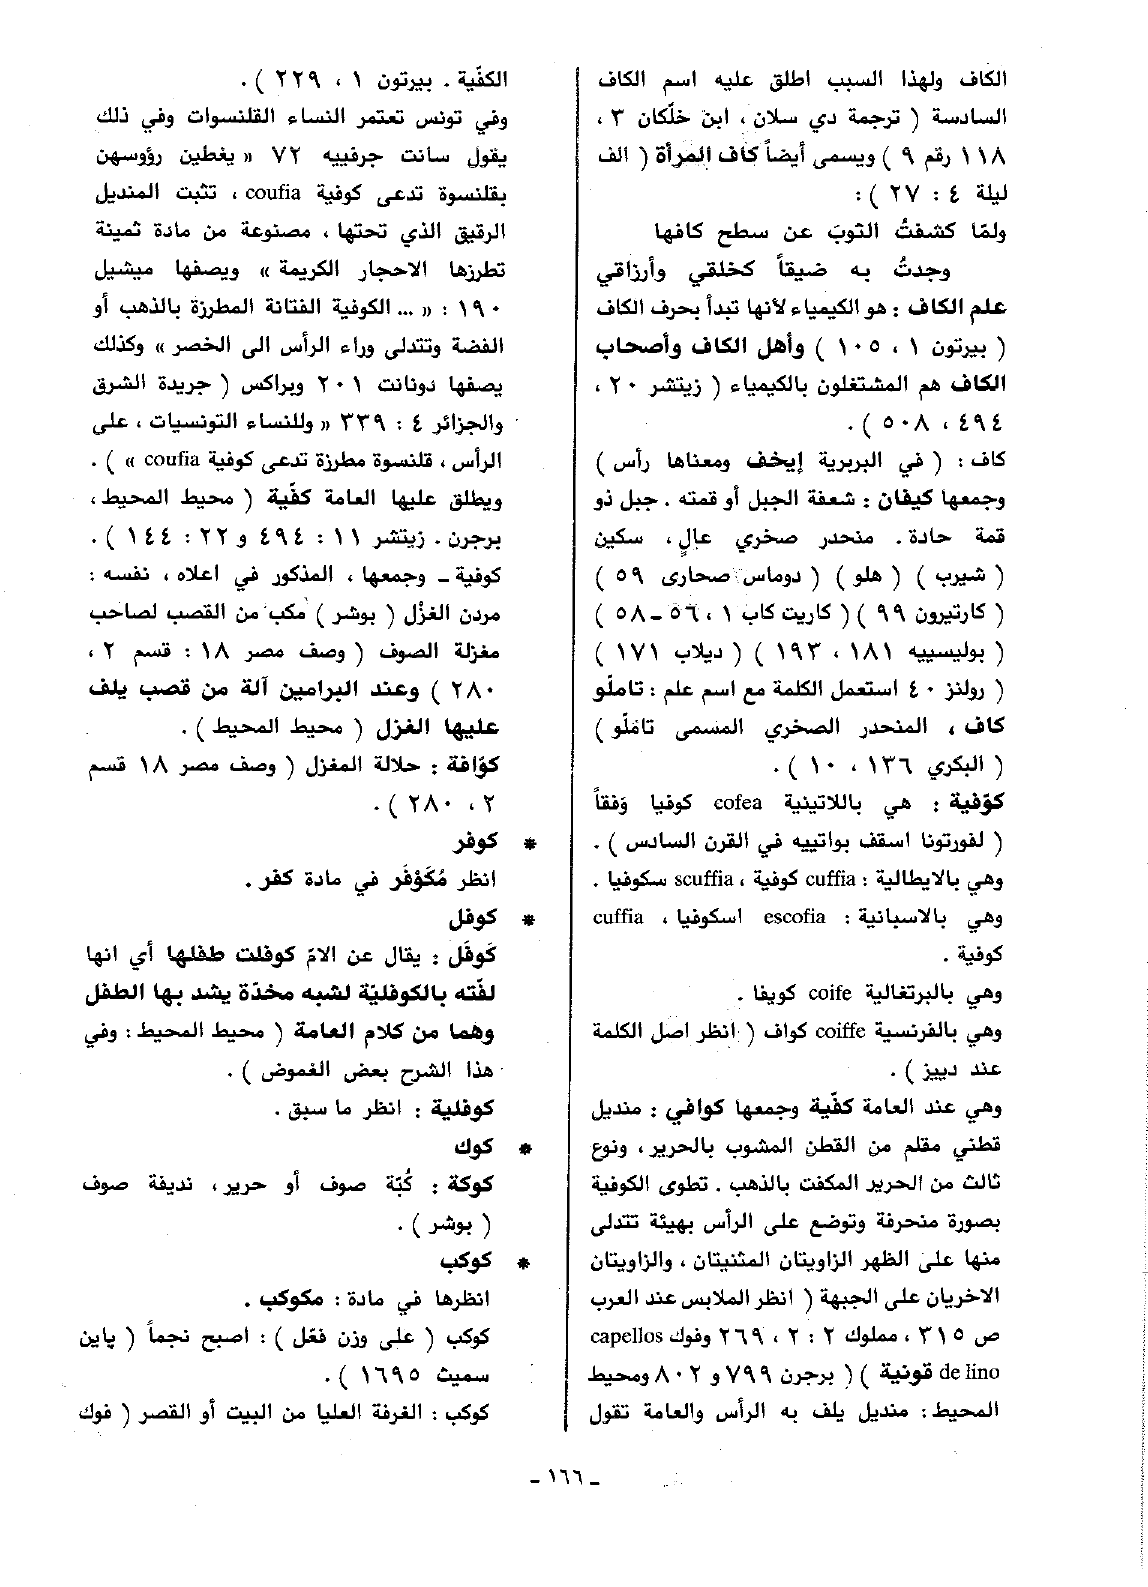 الكاف ولهذا السبب اطلق عليه اسم الكاف
السادسة ( ترجمة دي سلان ، ابن خلّكان ٣ ،
١١٨ رقم ٩ ) ويسمى أيضاً كاف المرأة ( الف
ليلة ٤ : ٢٧ ) :
ولمّا كشفتُ الثوبَ عن سطح كافها
وجدتُ به ضيقاً كخلقي وأرزاقي
علم الكاف : هو الكيمياء لأنها تبدأ بحرف الكاف
( بيرتون ١ ، ١٠٥ ) وأهل الكاف وأصحاب
الكاف هم المشتغلون بالكيمياء ( زيتشر ٢٠ ،
٤٩٤ ، ٥٠٨ ) .
كاف : ( في البربرية إيخف ومعناها رأس )
وجمعها كيفان : شعفة الجبل أو قمته . جبل ذو
قمة حادة . منحدر صخري عالٍ ، سكين
( شيرب ) ( هلو ) ( دوماس صحارى ٥٩ )
( كارتيرون ٩٩ ) ( كاريت كاب ١ ، ٥٦ ـ ٥٨ )
( بوليسييه ١٨١ ، ١٩٣ ) ( ديلاب ١٧١ )
( رولنز ٤٠ استعمل الكلمة مع اسم علم : تاملّو
كاف ، المنحدر الصخري المسمى تاملّو )
( البكري ١٣٦ ، ١٠ ) .
كوّفية : هي باللاتينية cofea كوفيا وَفقاً
( لفورتونا اسقف بواتييه في القرن السادس ) .
وهي بالايطالية : cuffia كوفية ، scuffia سكوفيا .
وهي بالاسبانية : escofia اسكوفيا ، cuffia
كوفية .
وهي بالبرتغالية coife كويفا .
وهي بالفرنسية coiffe كواف ( انظر اصل الكلمة
عند دييز ) .
وهي عند العامة كفّية وجمعها كوافي : منديل
قطني مقلم من القطن المشوب بالحرير ، ونوع
ثالث من الحرير المكفت بالذهب . تطوى الكوفية
بصورة منحرفة وتوضع على الرأس بهيئة تتدلى
منها على الظهر الزاويتان المثنيتان ، والزاويتان
الاخريان على الجبهة ( انظر الملابس عند العرب
ص ٣١٥ ، مملوك ٢ : ٢ ، ٢٦٩ وفوك capellos
de lino قونية ) ( برجرن ٧٩٩ و ٨٠٢ ومحيط
المحيط : منديل يلف به الرأس والعامة تقول
الكفّية . بيرتون ١ ، ٢٢٩ ) .
وفي تونس تعتمر النساء القلنسوات وفي ذلك
يقول سانت جرفييه ٧٢ « يغطين رؤوسهن
بقلنسوة تدعى كوفية coufia ، تثبت المنديل
الرقيق الذي تحتها ، مصنوعة من مادة ثمينة
تطرزها الاحجار الكريمة » ويصفها ميشيل
١٩٠ : « ... الكوفية الفتانة المطرزة بالذهب أو
الفضة وتتدلى وراء الرأس الى الخصر » وكذلك
يصفها دونانت ٢٠١ وپراكس ( جريدة الشرق
والجزائر ٤ : ٣٣٩ « وللنساء التونسيات ، على
الرأس ، قلنسوة مطرزة تدعى كوفية coufia » ) .
ويطلق عليها العامة كفّية ( محيط المحيط ،
برجرن . زيتشر ١١ : ٤٩٤ و ٢٢ : ١٤٤ ) .
كوفية ـ وجمعها ، المذكور في اعلاه ، نفسه :
مردن الغزْل ( بوشر ) مكب من القصب لصاحب
مغزلة الصوف ( وصف مصر ١٨ : قسم ٢ ،
٢٨٠ ) وعند البرامين آلة من قصب يلف
عليها الغزل ( محيط المحيط ) .
كوّافة : حلالة المغزل ( وصف مصر ١٨ قسم
٢ ، ٢٨٠ ) .
* كوفر
انظر مُكَوْفَر في مادة كفر .
* كوفل
كَوفَل : يقال عن الامّ كوفلت طفلها أي انها
لفّته بالكوفليّة لشبه مخدّة يشد بها الطفل
وهما من كلام العامة ( محيط المحيط : وفي
هذا الشرح بعض الغموض ) .
كوفلية : انظر ما سبق .
* كوك
كوكة : كُبّة صوف أو حرير ، نديفة صوف
( بوشر ) .
* كوكب
انظرها في مادة : مكوكب .
كوكب ( على وزن فعّل ) : اصبح نجماً ( پاين
سميث ١٦٩٥ ) .
كوكب : الغرفة العليا من البيت أو القصر ( فوك
ـ ١٦٦ ـ